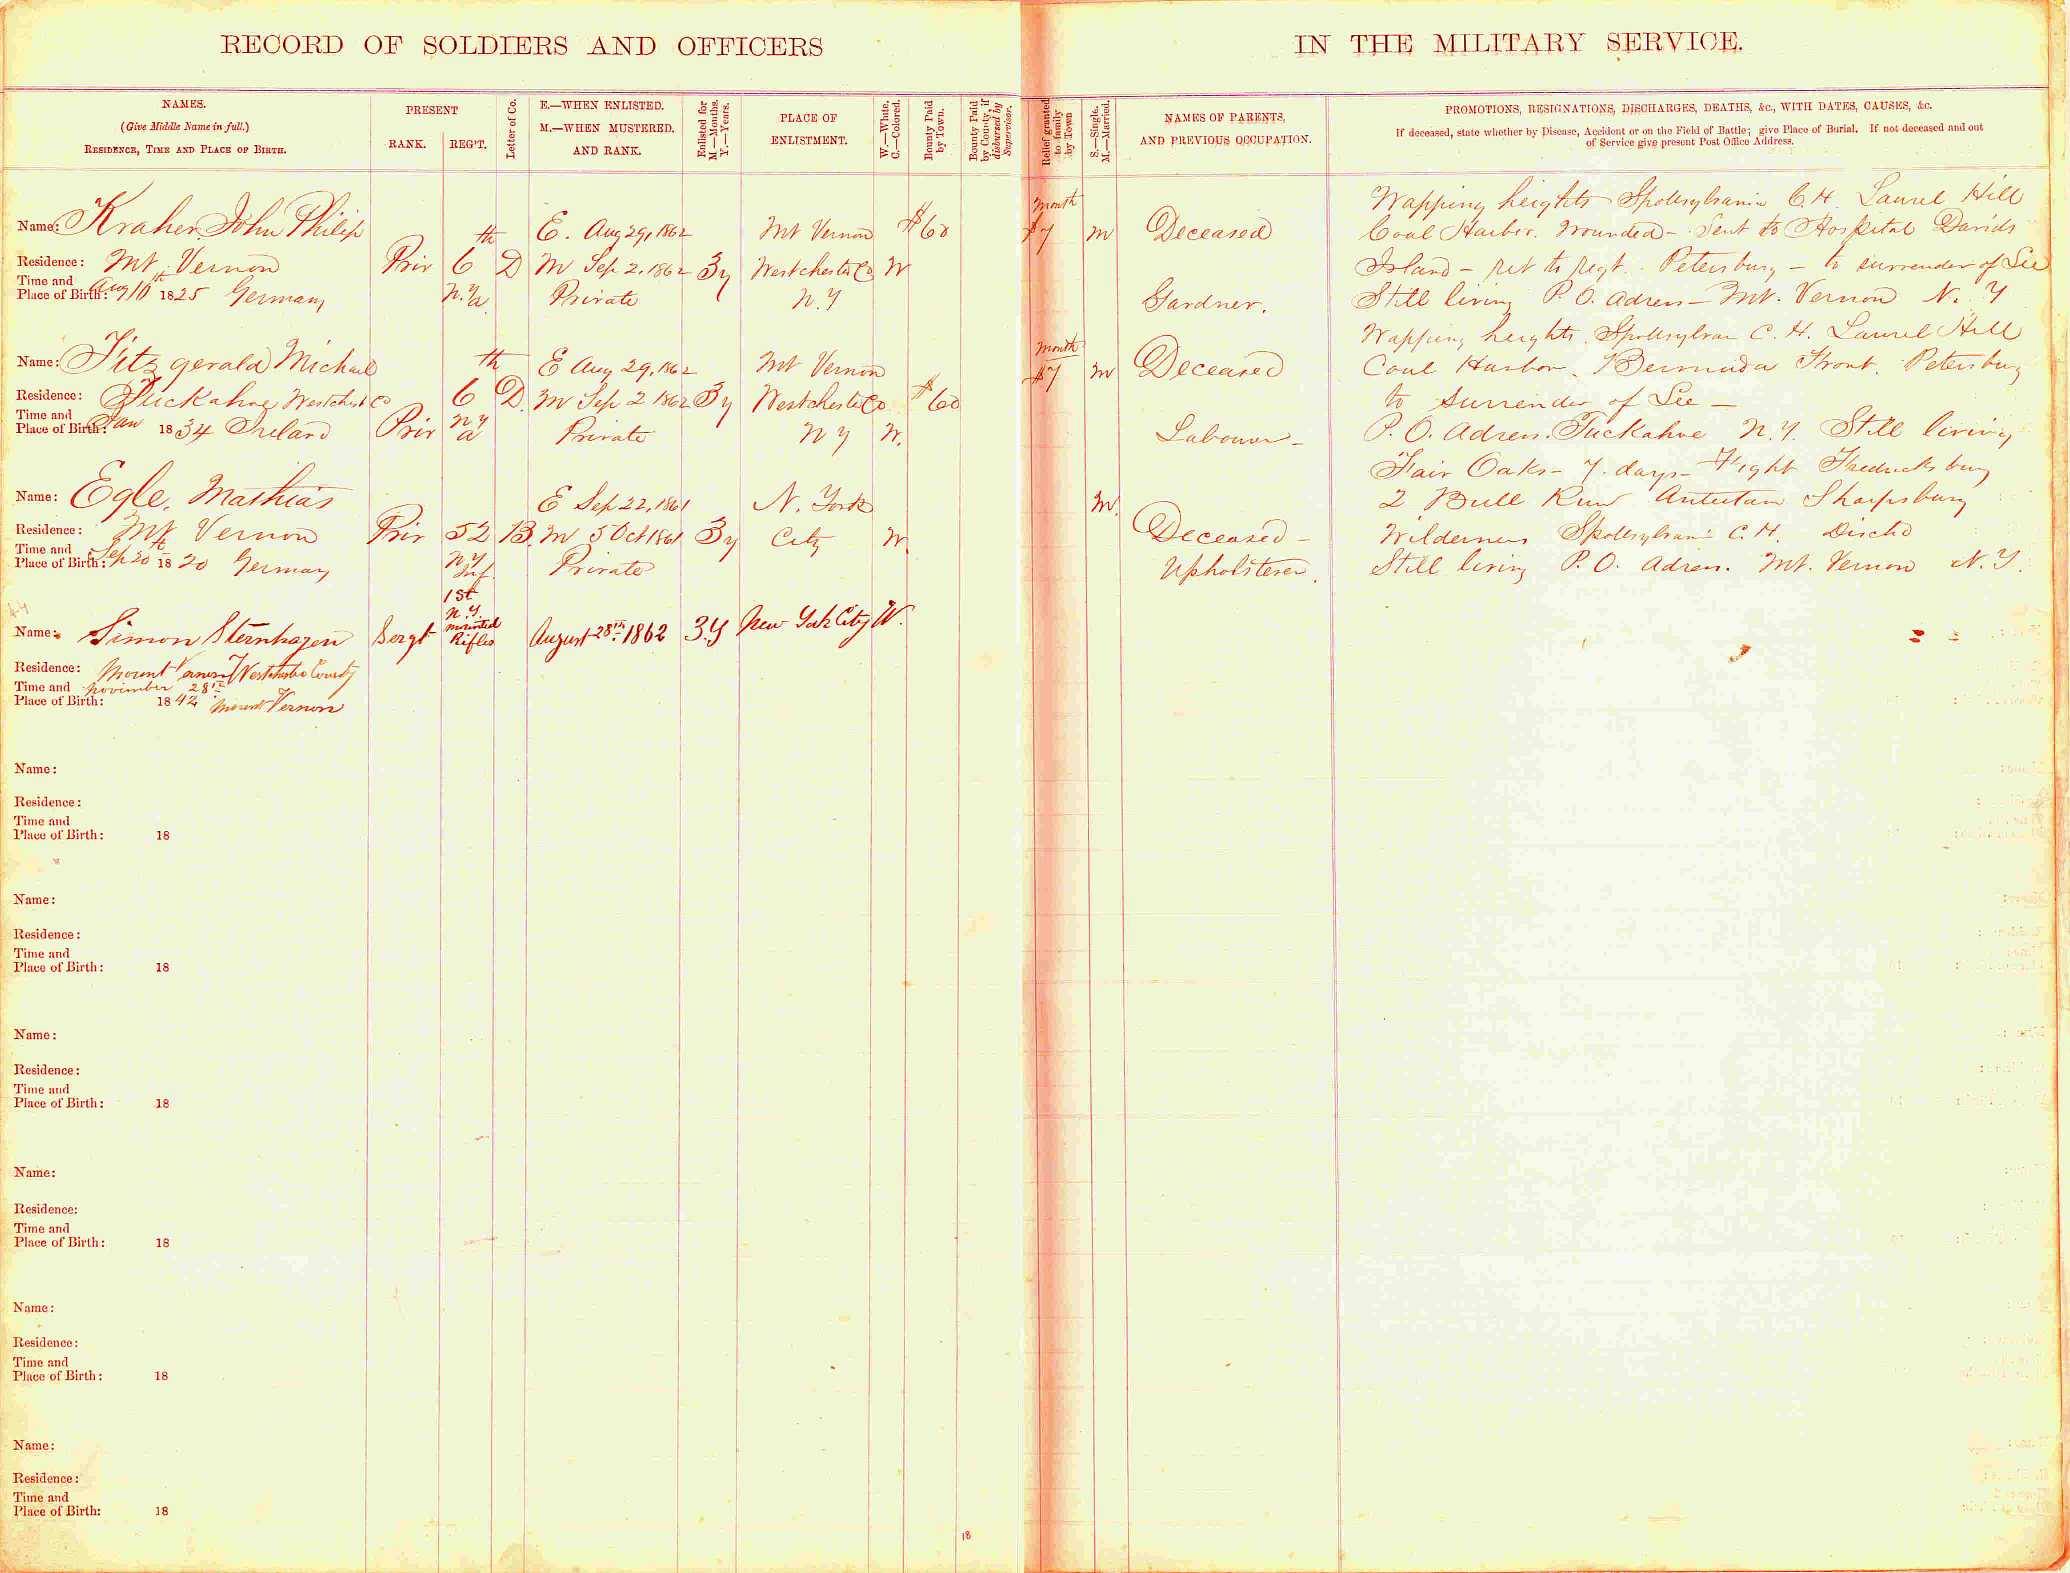 RECORD OF SOLDIERS AND OFFICERS IN THE MILITARY SERVICE.
NAMES.
(Give Middle Name in full.)
RESIDENCE, TIME AND PLACE OF BIRTH.
PRESENT
RANK. REG'T.
Letter of Co.
E.—WHEN ENLISTED.
M.—WHEN MUSTERED.
AND RANK.
Enlisted for
M.—Months.
Y.—Years.
PLACE OF
ENLISTMENT.
W.—White.
C.—Colored.
Bounty Paid
by Town.
Bounty Paid
by County, if
disbursed by
Supervisor.
Relief granted
to family
by Town
S.—Single.
M.—Married.
NAMES OF PARENTS,
AND PREVIOUS OCCUPATION.
PROMOTIONS, RESIGNATIONS, DISCHARGES, DEATHS, &c., WITH DATES, CAUSES, &c.
If deceased, state whether by Disease, Accident or on the Field of Battle; give Place of Burial. If not deceased and out
of Service give present Post Office Address.
Name: Kraher John Philip
Residence: Mt. Vernon
Time and
Place of Birth: Aug 10th 1825 Germany
Priv 6th N.Y.a. D
E. Aug 29, 1862
M Sep 2. 1862
Private
3y
Mt Vernon
Westchester Co
N.Y
W
$60
month
$7
M
Deceased
Gardner.
Wapping heights Spottsylvania C.H. Laurel Hill
Coal Harbor. Wounded - Sent to Hospital Davids
Island - ret to regt. Petersburg - to surrender of Lee
Still living P.O. adress - Mt. Vernon N.Y
Name: Fitzgerald Michael
Residence: Tuckahoe Westchest Co
Time and
Place of Birth: Jan 1834 Ireland
Priv 6th N.Y a D.
E Aug 29, 1862
M Sep 2 1862
Private
3y
Mt Vernon
Westchester Co
N Y
W.
$60
month
$7
M
Deceased
Labourer -
Wapping heights. Spottsylvan C. H. Laurel Hill
Coal Harbor. Bermuda Front. Petersburg
to Surrender of Lee -
P. O. adress. Tuckahoe N.Y. Still living
Name: Egle, Mathias
Residence: Mt Vernon
Time and
Place of Birth: Sep 20th 1820 Germany
Priv 52 N.Y Inf. B.
E Sep 22, 1861
M 5 Oct 1861
Private
3y
N. York
City
W.
M.
Deceased -
Upholsterer.
Fair Oaks - 7. days - Fight Fredricksburg
2 Bull Run Antietam Sharpsburg
Wilderness Spottsylvani C.H. Dischd
Still living P. O. adress. Mt. Vernon N.Y.
Name: Simon Sternhagen
Residence: Mount Vernon Westchester County
Time and november 28th
Place of Birth: 1842 Mount Vernon
Sergt
1st
N.Y.
mounted
Rifles
August 28th 1862
3.y
New York City
W.
Name:
Residence:
Time and
Place of Birth: 18
Name:
Residence:
Time and
Place of Birth: 18
Name:
Residence:
Time and
Place of Birth: 18
Name:
Residence:
Time and
Place of Birth: 18
Name:
Residence:
Time and
Place of Birth: 18
Name:
Residence:
Time and
Place of Birth: 18
18